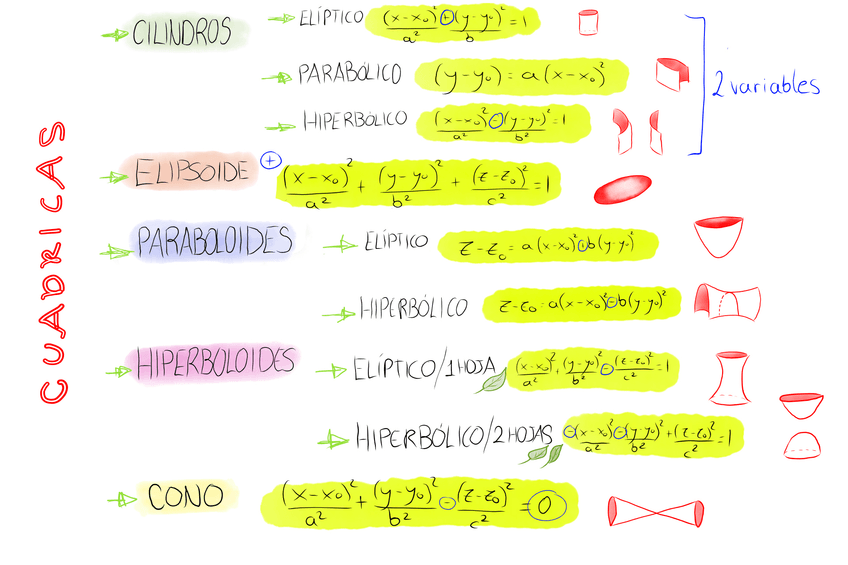 CUADRICAS
CILINDROS
ELÍPTICO (x-x₀)²/a² + (y-y₀)²/b² = 1
PARABÓLICO (y-y₀) = a(x-x₀)²
HIPERBÓLICO (x-x₀)²/a² - (y-y₀)²/b² = 1
2 variables
ELIPSOIDE + (x-x₀)²/a² + (y-y₀)²/b² + (z-z₀)²/c² = 1
PARABOLOIDES
ELÍPTICO z-z₀ = a(x-x₀)² + b(y-y₀)²
HIPERBÓLICO z-z₀ = a(x-x₀)² - b(y-y₀)²
HIPERBOLOIDES
ELÍPTICO/1HOJA (x-x₀)²/a² + (y-y₀)²/b² - (z-z₀)²/c² = 1
HIPERBÓLICO/2HOJAS -(x-x₀)²/a² - (y-y₀)²/b² + (z-z₀)²/c² = 1
CONO (x-x₀)²/a² + (y-y₀)²/b² - (z-z₀)²/c² = 0